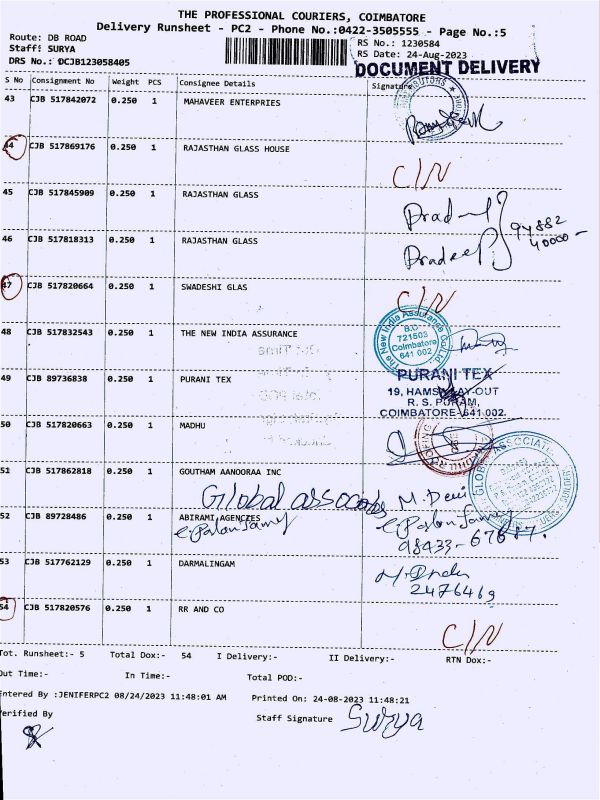 THE PROFESSIONAL COURIERS, COIMBATORE
Delivery Runsheet - PC2 - Phone No.:0422-3505555 - Page No.:5
Route: DB ROAD
RS No.: 1230584
Staff: SURYA
RS Date: 24-Aug-2023
DRS No.: DCJB123058405
DOCUMENT DELIVERY
S No Consignment No Weight PCS Consignee Details Signature
43 CJB 517842072 0.250 1 MAHAVEER ENTERPRIES
44 CJB 517869176 0.250 1 RAJASTHAN GLASS HOUSE
C/N
45 CJB 517845909 0.250 1 RAJASTHAN GLASS
Pradeep
94882
40000 -
46 CJB 517818313 0.250 1 RAJASTHAN GLASS
Pradeep
47 CJB 517820664 0.250 1 SWADESHI GLAS
C/N
The New India Assurance Co.Ltd
B.O
721503
Coimbatore
641 002
48 CJB 517832543 0.250 1 THE NEW INDIA ASSURANCE
49 CJB 89736838 0.250 1 PURANI TEX
PURANI TEX
R. S. PURAM,
COIMBATORE-641 002.
50 CJB 517820663 0.250 1 MADHU
GLOBAL ASSOCIATE
51 CJB 517862818 0.250 1 GOUTHAM AANOORAA INC
Global assocates M. Devi
52 CJB 89728486 0.250 1 ABIRAMI AGENCIES
53 CJB 517762129 0.250 1 DARMALINGAM
2476469
54 CJB 517820576 0.250 1 RR AND CO
C/N
Tot. Runsheet:- 5 Total Dox:- 54 I Delivery:- II Delivery:- RTN Dox:-
Out Time:- In Time:- Total POD:-
Entered By :JENIFERPC2 08/24/2023 11:48:01 AM Printed On: 24-08-2023 11:48:21
Verified By
Staff Signature Surya